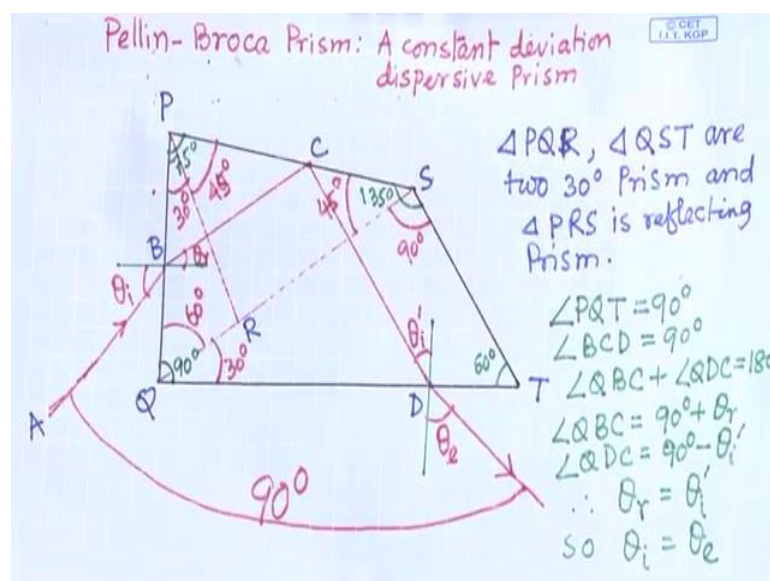 Pellin-Broca Prism: A constant deviation
dispersive Prism
© CET
I.I.T. KGP
P
75°
45°
30°
C
S
45°
135°
90°
B
θr
θi
60°
R
30°
90°
Q
A
θi'
60°
T
D
θe
90°
△PQR, △QST are
two 30° Prism and
△PRS is reflecting
Prism.
∠PQT = 90°
∠BCD = 90°
∠QBC + ∠QDC = 180
∠QBC = 90° + θr
∠QDC = 90° - θi'
∴ θr = θi'
so θi = θe